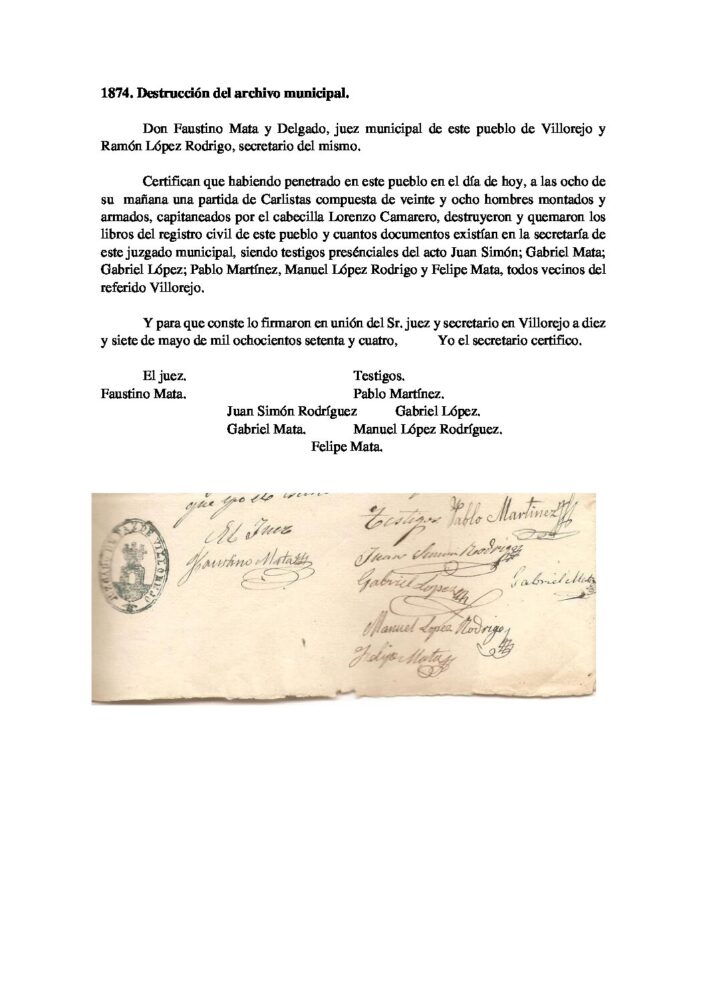 1874. Destrucción del archivo municipal.
Don Faustino Mata y Delgado, juez municipal de este pueblo de Villorejo y
Ramón López Rodrigo, secretario del mismo.
Certifican que habiendo penetrado en este pueblo en el día de hoy, a las ocho de
su mañana una partida de Carlistas compuesta de veinte y ocho hombres montados y
armados, capitaneados por el cabecilla Lorenzo Camarero, destruyeron y quemaron los
libros del registro civil de este pueblo y cuantos documentos existían en la secretaría de
este juzgado municipal, siendo testigos presénciales del acto Juan Simón; Gabriel Mata;
Gabriel López; Pablo Martínez, Manuel López Rodrigo y Felipe Mata, todos vecinos del
referido Villorejo.
Y para que conste lo firmaron en unión del Sr. juez y secretario en Villorejo a diez
y siete de mayo de mil ochocientos setenta y cuatro, Yo el secretario certifico.
El juez. Testigos.
Faustino Mata. Pablo Martínez.
Juan Simón Rodríguez Gabriel López.
Gabriel Mata. Manuel López Rodríguez.
Felipe Mata.
que yo
El Juez
Faustino Mata
Testigos Pablo Martinez
Juan Simon Rodrigo
Gabriel Lopez Gabriel Mata
Manuel Lopez Rodrigo
Felipe Mata
VILLOREJO